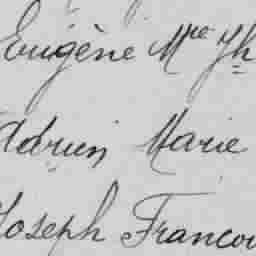 Eugène Mie Jh
Adrien Marie
Joseph Francoi